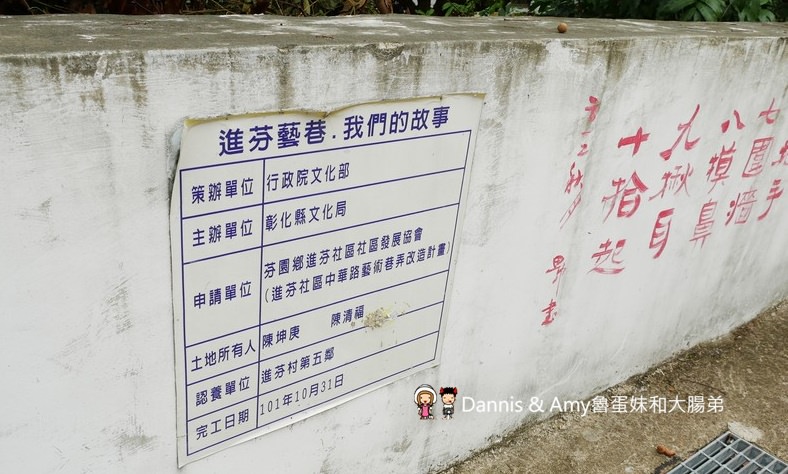 進芬藝巷.我們的故事
策辦單位 行政院文化部
主辦單位 彰化縣文化局
申請單位 芬園鄉進芬社區社區發展協會
(進芬社區中華路藝術巷弄改造計畫)
土地所有人 陳坤庚 陳清福
認養單位 進芬村第五鄰
完工日期 101年10月31日
七 手
八摸鼻
九揪耳
十拾起
Dannis & Amy魯蛋妹和大腸弟